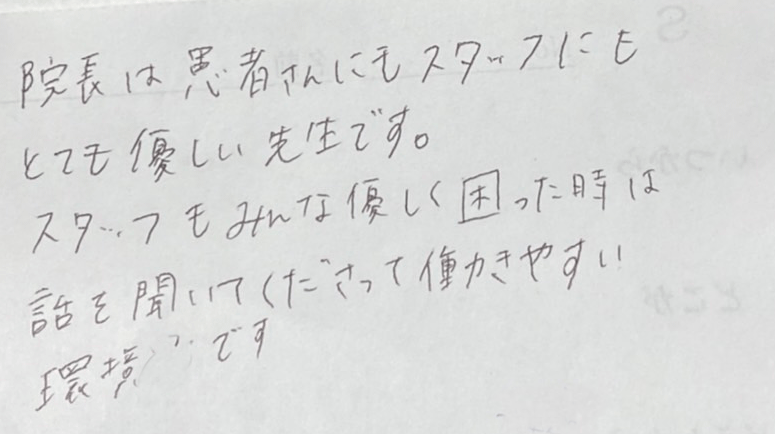 院長は患者さんにもスタッフにも
とても優しい先生です。
スタッフもみんな優しく困った時は
話を聞いてくださって働きやすい
環境です